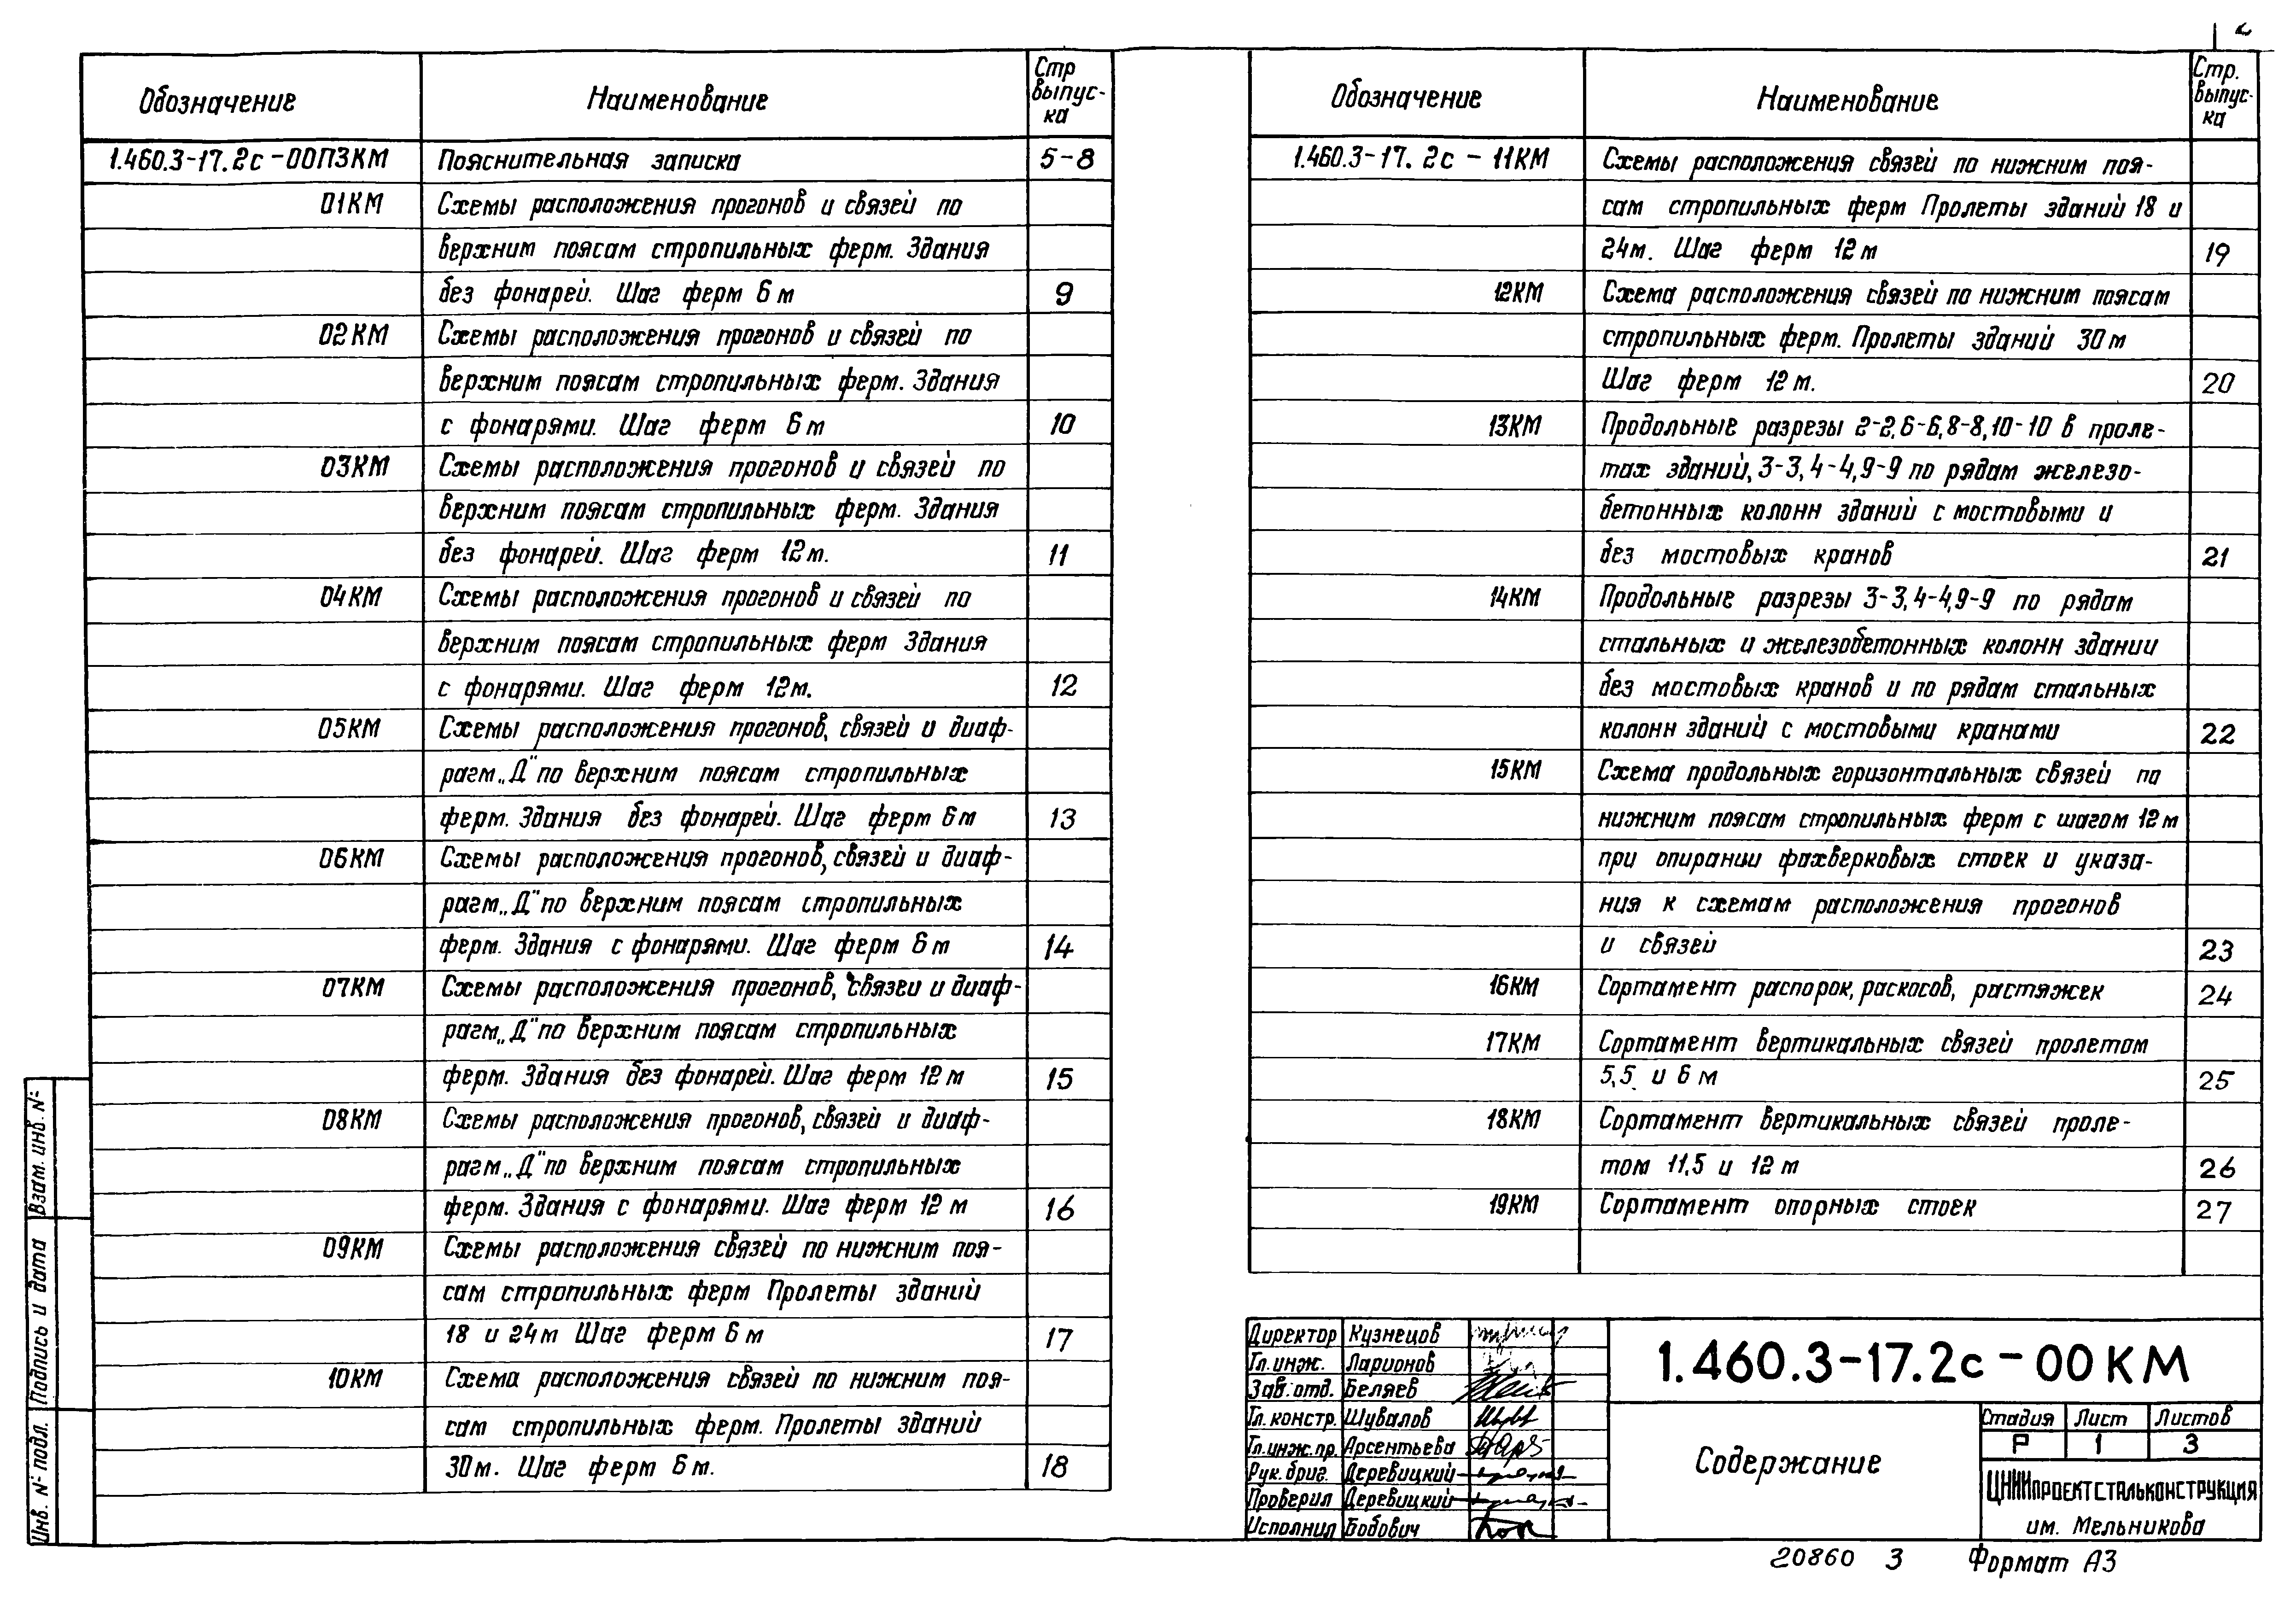 Обозначение Наименование Стр выпус-ка
1.460.3-17.2с-00ПЗКМ Пояснительная записка 5-8
01КМ Схемы расположения прогонов и связей по
верхним поясам стропильных ферм. Здания
без фонарей. Шаг ферм 6 м 9
02КМ Схемы расположения прогонов и связей по
верхним поясам стропильных ферм. Здания
с фонарями. Шаг ферм 6 м 10
03КМ Схемы расположения прогонов и связей по
верхним поясам стропильных ферм. Здания
без фонарей. Шаг ферм 12 м. 11
04КМ Схемы расположения прогонов и связей по
верхним поясам стропильных ферм Здания
с фонарями. Шаг ферм 12 м. 12
05КМ Схемы расположения прогонов, связей и диаф-
рагм „Д" по верхним поясам стропильных
ферм. Здания без фонарей. Шаг ферм 6 м 13
06КМ Схемы расположения прогонов, связей и диаф-
рагм „Д" по верхним поясам стропильных
ферм. Здания с фонарями. Шаг ферм 6 м 14
07КМ Схемы расположения прогонов, связеи и диаф-
рагм „Д" по верхним поясам стропильных
ферм. Здания без фонарей. Шаг ферм 12 м 15
08КМ Схемы расположения прогонов, связей и диаф-
рагм „Д" по верхним поясам стропильных
ферм. Здания с фонарями. Шаг ферм 12 м 16
09КМ Схемы расположения связей по нижним поя-
сам стропильных ферм Пролеты зданий
18 и 24 м Шаг ферм 6 м 17
10КМ Схема расположения связей по нижним поя-
сам стропильных ферм. Пролеты зданий
30 м. Шаг ферм 6 м. 18
Обозначение Наименование Стр. выпус-ка
1.460.3-17.2с-11КМ Схемы расположения связей по нижним поя-
сам стропильных ферм Пролеты зданий 18 и
24 м. Шаг ферм 12 м 19
12КМ Схема расположения связей по нижним поясам
стропильных ферм. Пролеты зданий 30 м
Шаг ферм 12 м. 20
13КМ Продольные разрезы 2-2, 6-6, 8-8, 10-10 в проле-
тах зданий, 3-3, 4-4, 9-9 по рядам железо-
бетонных колонн зданий с мостовыми и
без мостовых кранов 21
14КМ Продольные разрезы 3-3, 4-4, 9-9 по рядам
стальных и железобетонных колонн здании
без мостовых кранов и по рядам стальных
колонн зданий с мостовыми кранами 22
15КМ Схема продольных горизонтальных связей по
нижним поясам стропильных ферм с шагом 12 м
при опирании фахверковых стоек и указа-
ния к схемам расположения прогонов
и связей 23
16КМ Сортамент распорок, раскосов, растяжек 24
17КМ Сортамент вертикальных связей пролетом
5,5 и 6 м 25
18КМ Сортамент вертикальных связей проле-
том 11,5 и 12 м 26
19КМ Сортамент опорных стоек 27
Директор Кузнецов
Гл. инж. Ларионов
Зав. отд. Беляев
Гл. констр. Шувалов
Гл. инж. пр. Арсентьева
Рук. бриг. Деревицкий
Проверил Деревицкий
Исполнил Бобович
1.460.3-17.2с-00КМ
Содержание
Стадия Лист Листов
Р 1 3
ЦНИИпроектстальконструкция
им. Мельникова
20860 3 Формат А3
Взам. инв. №
Подпись и дата
Инв. № подл.